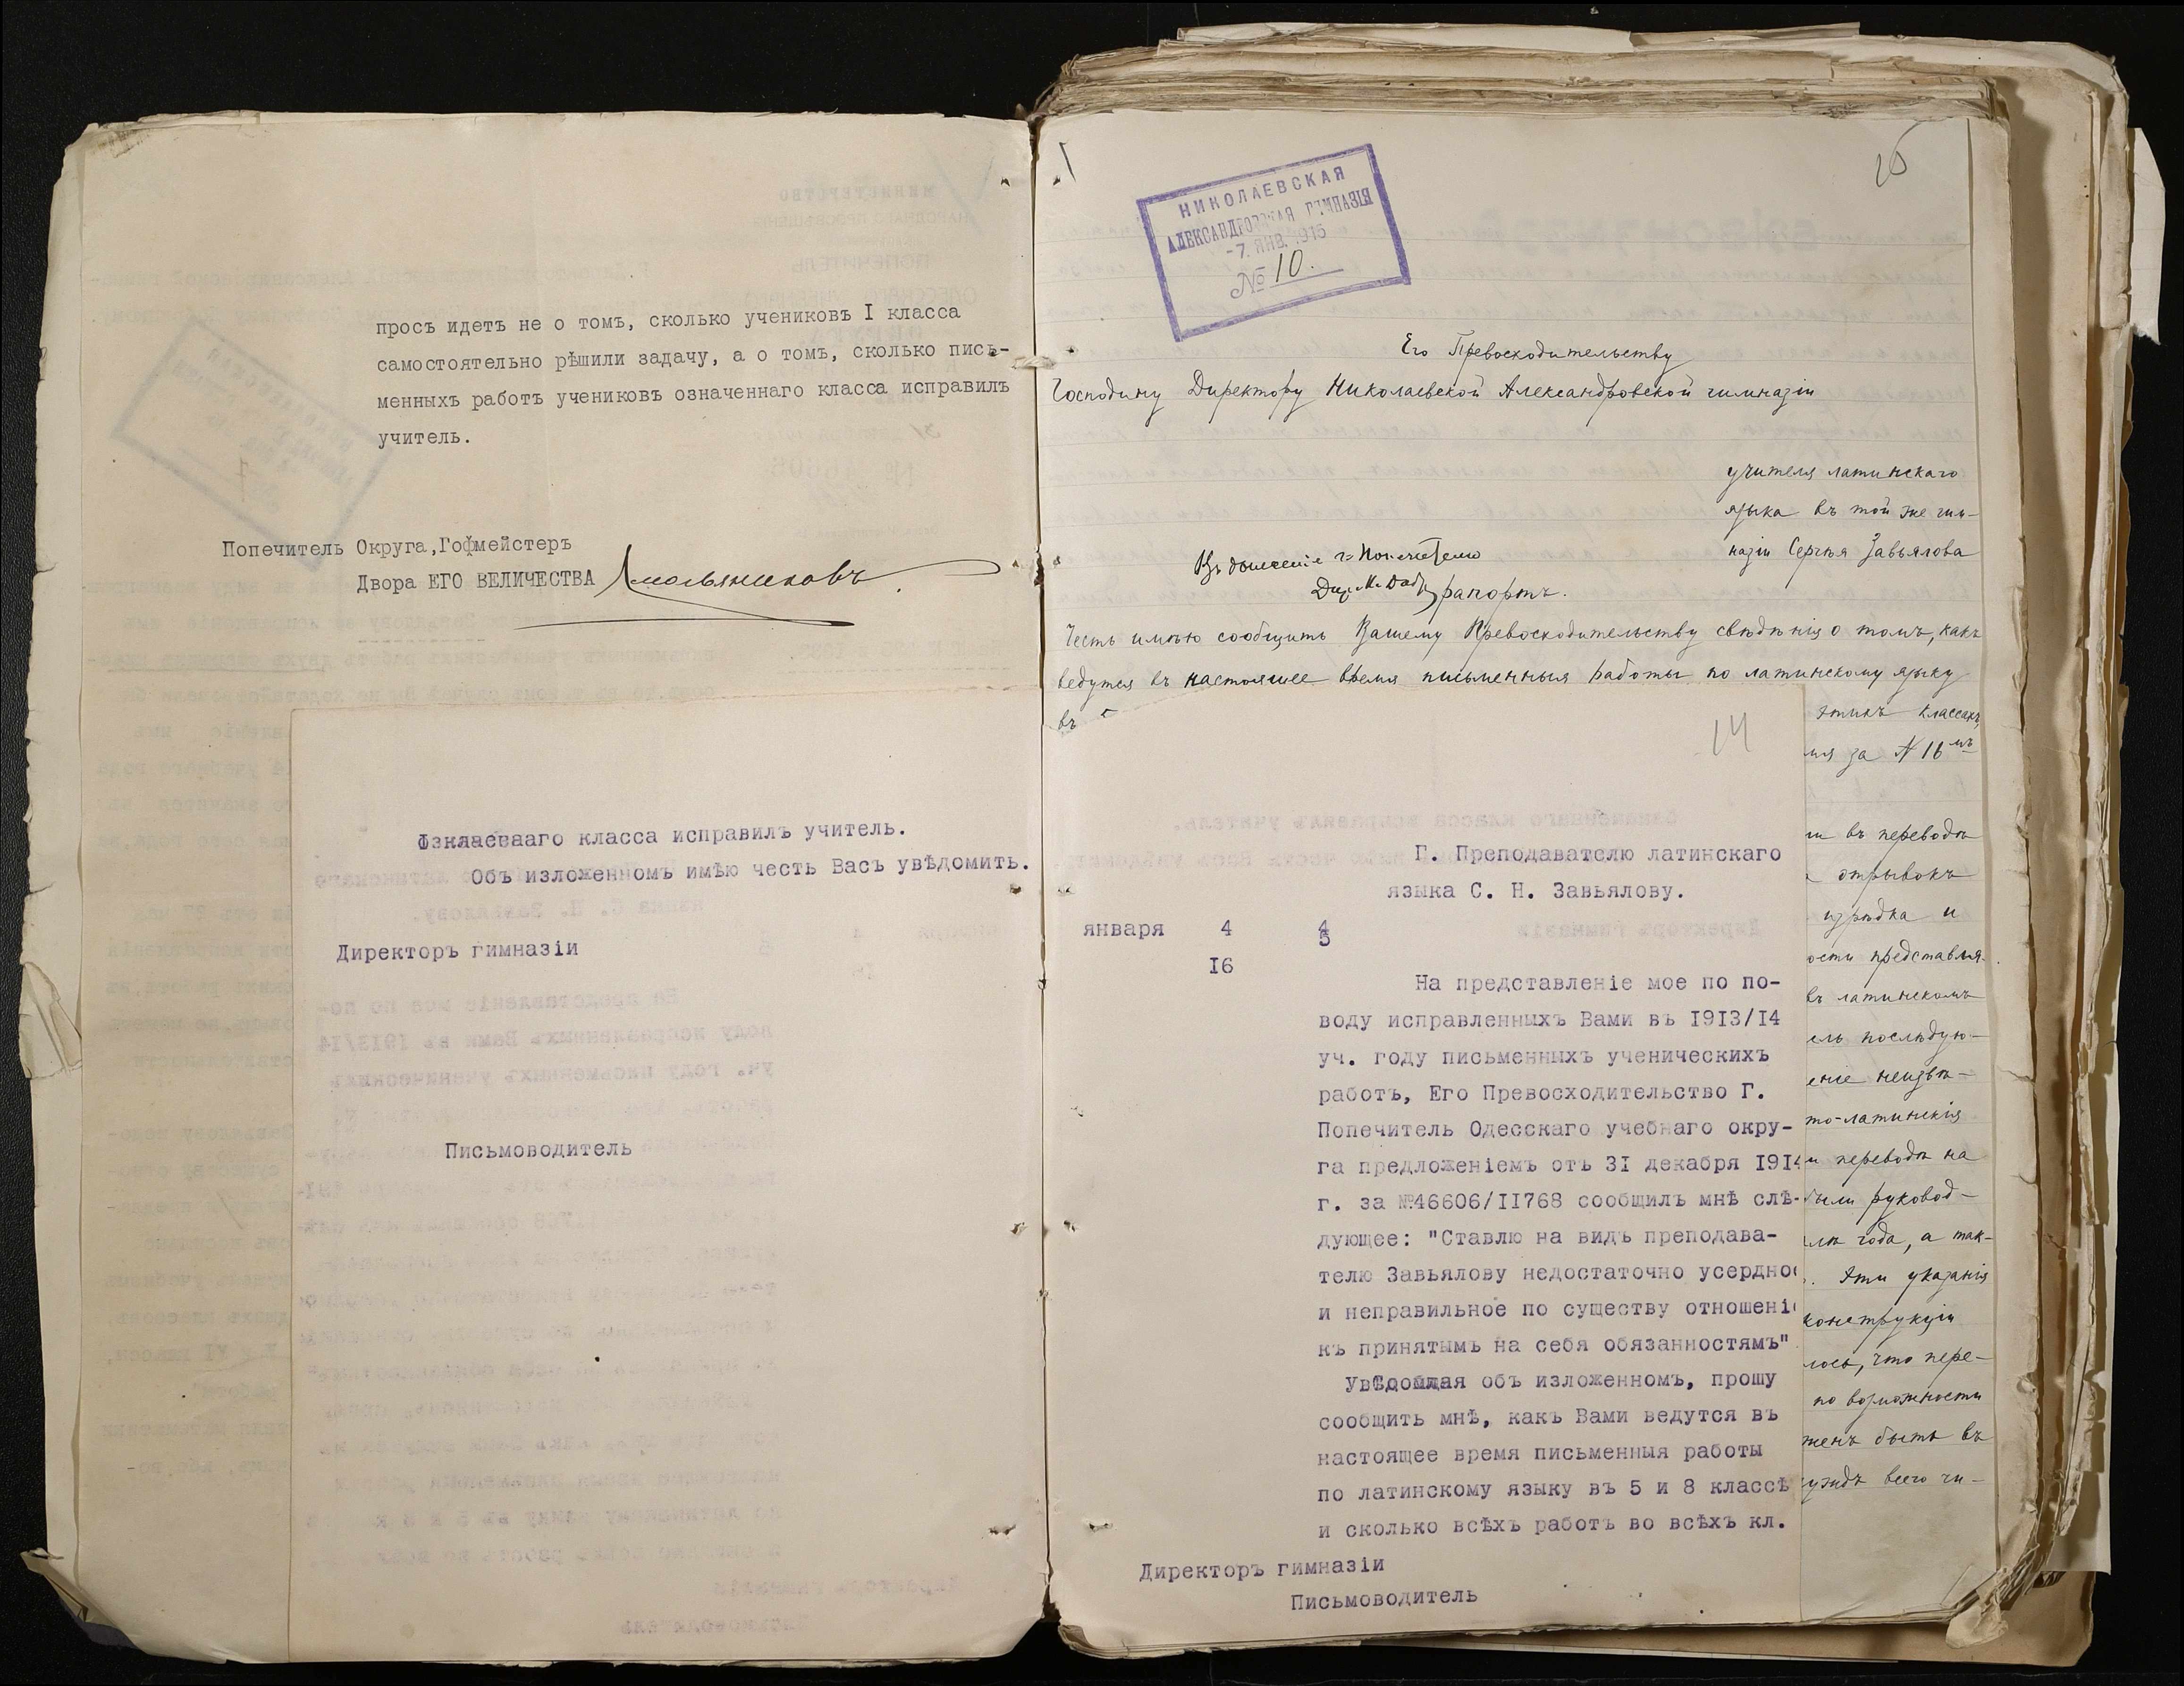 просъ идетъ не о томъ, сколько учениковъ I класса
самостоятельно рѣшили задачу, а о томъ, сколько пись-
менныхъ работъ учениковъ означеннаго класса исправилъ
учитель.
Попечитель Округа,Гофмейстеръ
Двора ЕГО ВЕЛИЧЕСТВА Смольяниновъ
класса исправилъ учитель.
Объ изложенномъ имѣю честь Васъ увѣдомить.
Директоръ гимназіи
Письмоводитель
НИКОЛАЕВСКАЯ
АЛЕКСАНДРОВСКАЯ ГИМНАЗІЯ
-7. ЯНВ. 1915
№ 10.
15
Его Превосходительству
Господину Директору Николаевской Александровской гимназіи
учителя латинскаго
языка въ той же гим-
назіи Сергѣя Завьялова
рапортъ.
Честь имѣю сообщить Вашему Превосходительству свѣдѣнія о томъ, какъ
ведутся въ настоящее время письменныя работы по латинскому языку
въ
14
Г. Преподавателю латинскаго
языка С. Н. Завьялову.
января 4
16
На представленіе мое по по-
воду исправленныхъ Вами въ 1913/14
уч. году письменныхъ ученическихъ
работъ, Его Превосходительство Г.
Попечитель Одесскаго учебнаго окру-
га предложеніемъ отъ 31 декабря 1914
г. за №46606/11768 сообщилъ мнѣ слѣ-
дующее: "Ставлю на видъ преподава-
телю Завьялову недостаточно усердное
и неправильное по существу отношені
къ принятымъ на себя обязанностямъ"
объ изложенномъ, прошу
сообщить мнѣ, какъ Вами ведутся въ
настоящее время письменныя работы
по латинскому языку въ 5 и 8 классѣ
и сколько всѣхъ работъ во всѣхъ кл.
Директоръ гимназіи
Письмоводитель
этихъ классахъ,
за N 16
въ переводѣ
отрывокъ
изрѣдка и
ости представля-
въ латинскомъ
ель послѣдую-
еніе неизвѣ-
то-латинскія
и переводѣ на
были руковод-
года, а так-
Эти указанія
конструкціи
лось, что пере-
по возможности
женъ быть въ
всего чи-